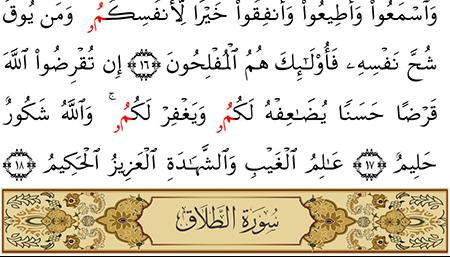 وَٱسۡمَعُواْ وَأَطِيعُواْ وَأَنفِقُواْ خَيۡرٗا لِّأَنفُسِكُمُۥ وَمَن يُوقَ
شُحَّ نَفۡسِهِۦ فَأُوْلَٰٓئِكَ هُمُ ٱلۡمُفۡلِحُونَ ١٦ إِن تُقۡرِضُواْ ٱللَّهَ
قَرۡضًا حَسَنٗا يُضَٰعِفۡهُ لَكُمُۥ وَيَغۡفِرۡ لَكُمُۥۚ وَٱللَّهُ شَكُورٌ
حَلِيمٌ ١٧ عَٰلِمُ ٱلۡغَيۡبِ وَٱلشَّهَٰدَةِ ٱلۡعَزِيزُ ٱلۡحَكِيمُ ١٨
سُورَةُ الطَّلَاقِ